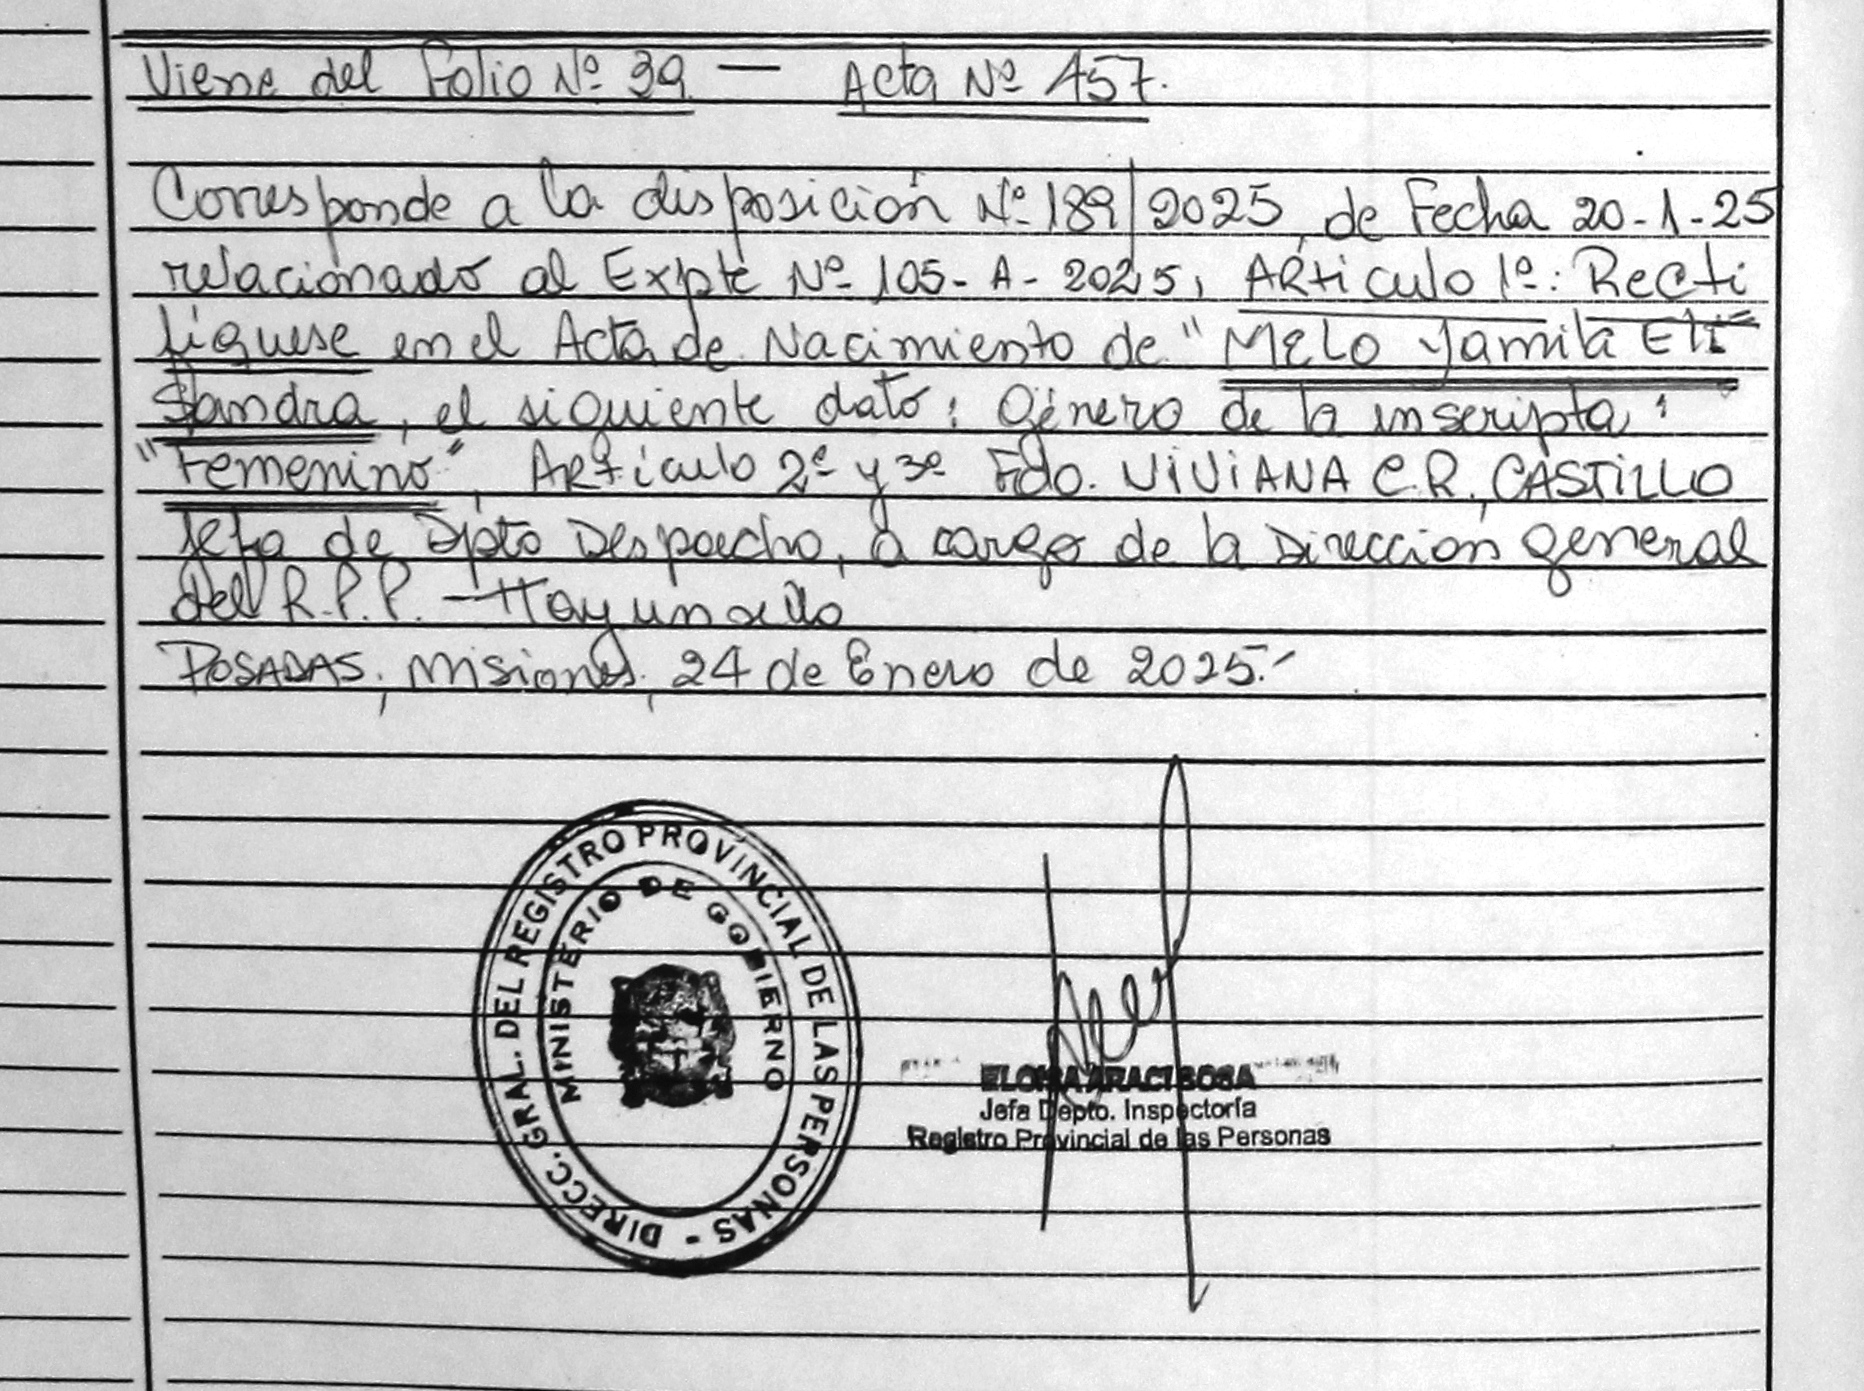 Viene del Folio Nº 39 — Acta Nº 457.
Corresponde a la disposición Nº 189/2025, de Fecha 20-1-25
relacionado al Expte Nº 105-A-2025, Artículo 1º: Recti
fíquese en el Acta de Nacimiento de "Melo Yamila Eli
Sandra, el siguiente dato: Género de la inscripta:
"Femenino", Artículo 2º y 3º Fdo. VIVIANA C.R. CASTILLO
Jefa de Dpto Despacho, a cargo de la Dirección General
del R.P.P. - Hay un sello
POSADAS, Misiones, 24 de Enero de 2025.-
DIRECC. GRAL. DEL REGISTRO PROVINCIAL DE LAS PERSONAS -
MINISTERIO DE GOBIERNO
ELOISA ARACI SOSA
Jefa Depto. Inspectoría
Registro Provincial de las Personas